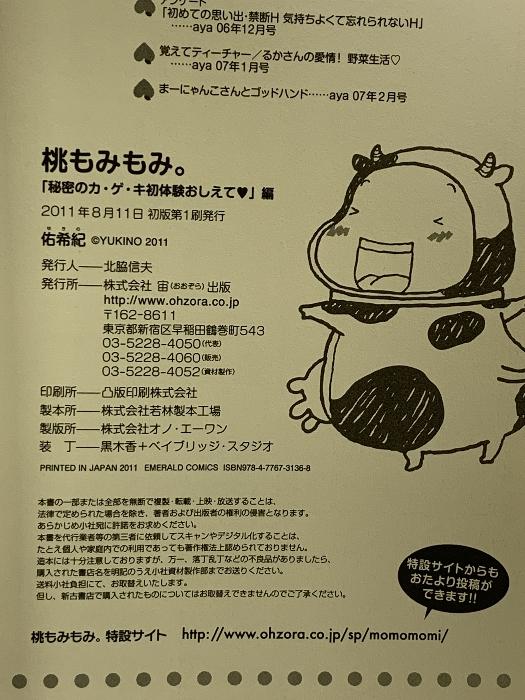 「初めての思い出・禁断H 気持ちよくて忘れられないH」
……aya 06年12月号
覚えてティーチャー／るかさんの愛情！ 野菜生活♡
……aya 07年1月号
まーにゃんこさんとゴッドハンド……aya 07年2月号
桃もみもみ。
「秘密のカ・ゲ・キ初体験おしえて♥」編
2011年8月11日 初版第1刷発行
ゆきの
佑希紀 ©YUKINO 2011
発行人——北脇信夫
発行所——株式会社 宙(おおぞら)出版
http://www.ohzora.co.jp
〒162-8611
東京都新宿区早稲田鶴巻町543
03-5228-4050(代表)
03-5228-4060(販売)
03-5228-4052(資材製作)
印刷所——凸版印刷株式会社
製本所——株式会社若林製本工場
製版所——株式会社オノ・エーワン
装　丁——黒木香＋ベイブリッジ・スタジオ
PRINTED IN JAPAN 2011 EMERALD COMICS ISBN978-4-7767-3136-8
本書の一部または全部を無断で複製・転載・上映・放送することは、
法律で定められた場合を除き、著者および出版者の権利の侵害となります。
あらかじめ小社宛に許諾をお求めください。
本書を代行業者等の第三者に依頼してスキャンやデジタル化することは、
たとえ個人や家庭内での利用であっても著作権法上認められておりません。
造本には十分注意しておりますが、万一、落丁乱丁などの不良品がありましたら、
購入された書店名を明記のうえ小社資材製作部までお送りください。
送料小社負担にて、お取替えいたします。
但し、新古書店で購入されたものについてはお取替えできませんのでご了承ください。
特設サイトからも
おたより投稿が
できます!!
桃もみもみ。特設サイト http://www.ohzora.co.jp/sp/momomomi/